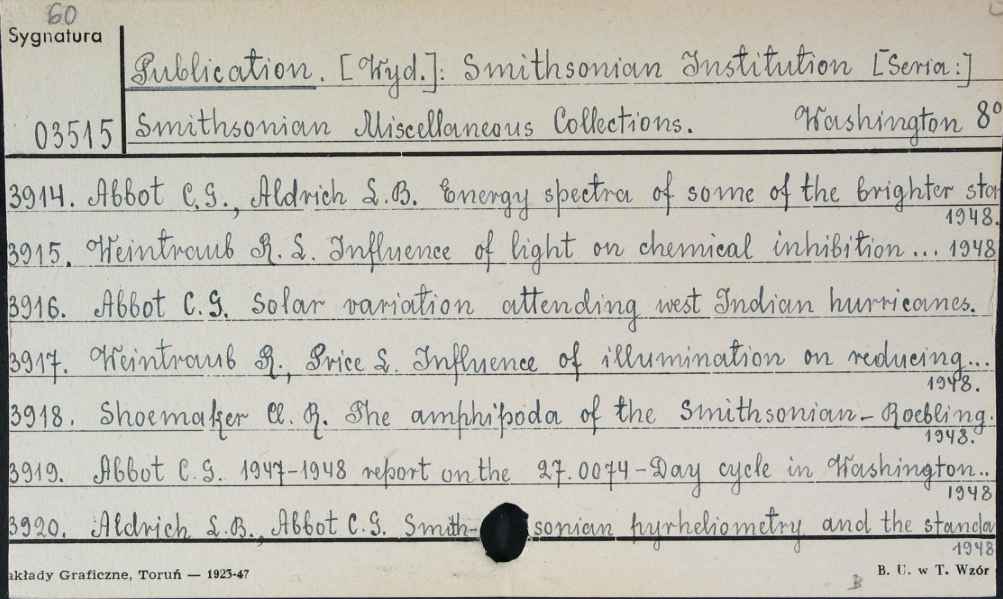 60
Sygnatura
Publication. [Wyd.]: Smithsonian Institution [Seria:]
03515 Smithsonian Miscellaneous Collections. Washington 8°
3914. Abbot C.G., Aldrich L.B. Energy spectra of some of the brighter star
1948.
3915. Weintraub R. L. Influence of light on chemical inhibition... 1948
3916. Abbot C.G. Solar variation attending west Indian hurricanes.
3917. Weintraub R., Price L. Influence of illumination on reducing...
1948.
3918. Shoemaker Cl. R. The amphipoda of the Smithsonian-Roebling.
1948.
3919. Abbot C.G. 1947-1948 report on the 27.0074-Day cycle in Washington..
1948
3920. Aldrich L.B., Abbot C.G. Smith-sonian pyrheliometry and the standa
1948
akłady Graficzne, Toruń — 1923-47
B. U. w T. Wzór
B